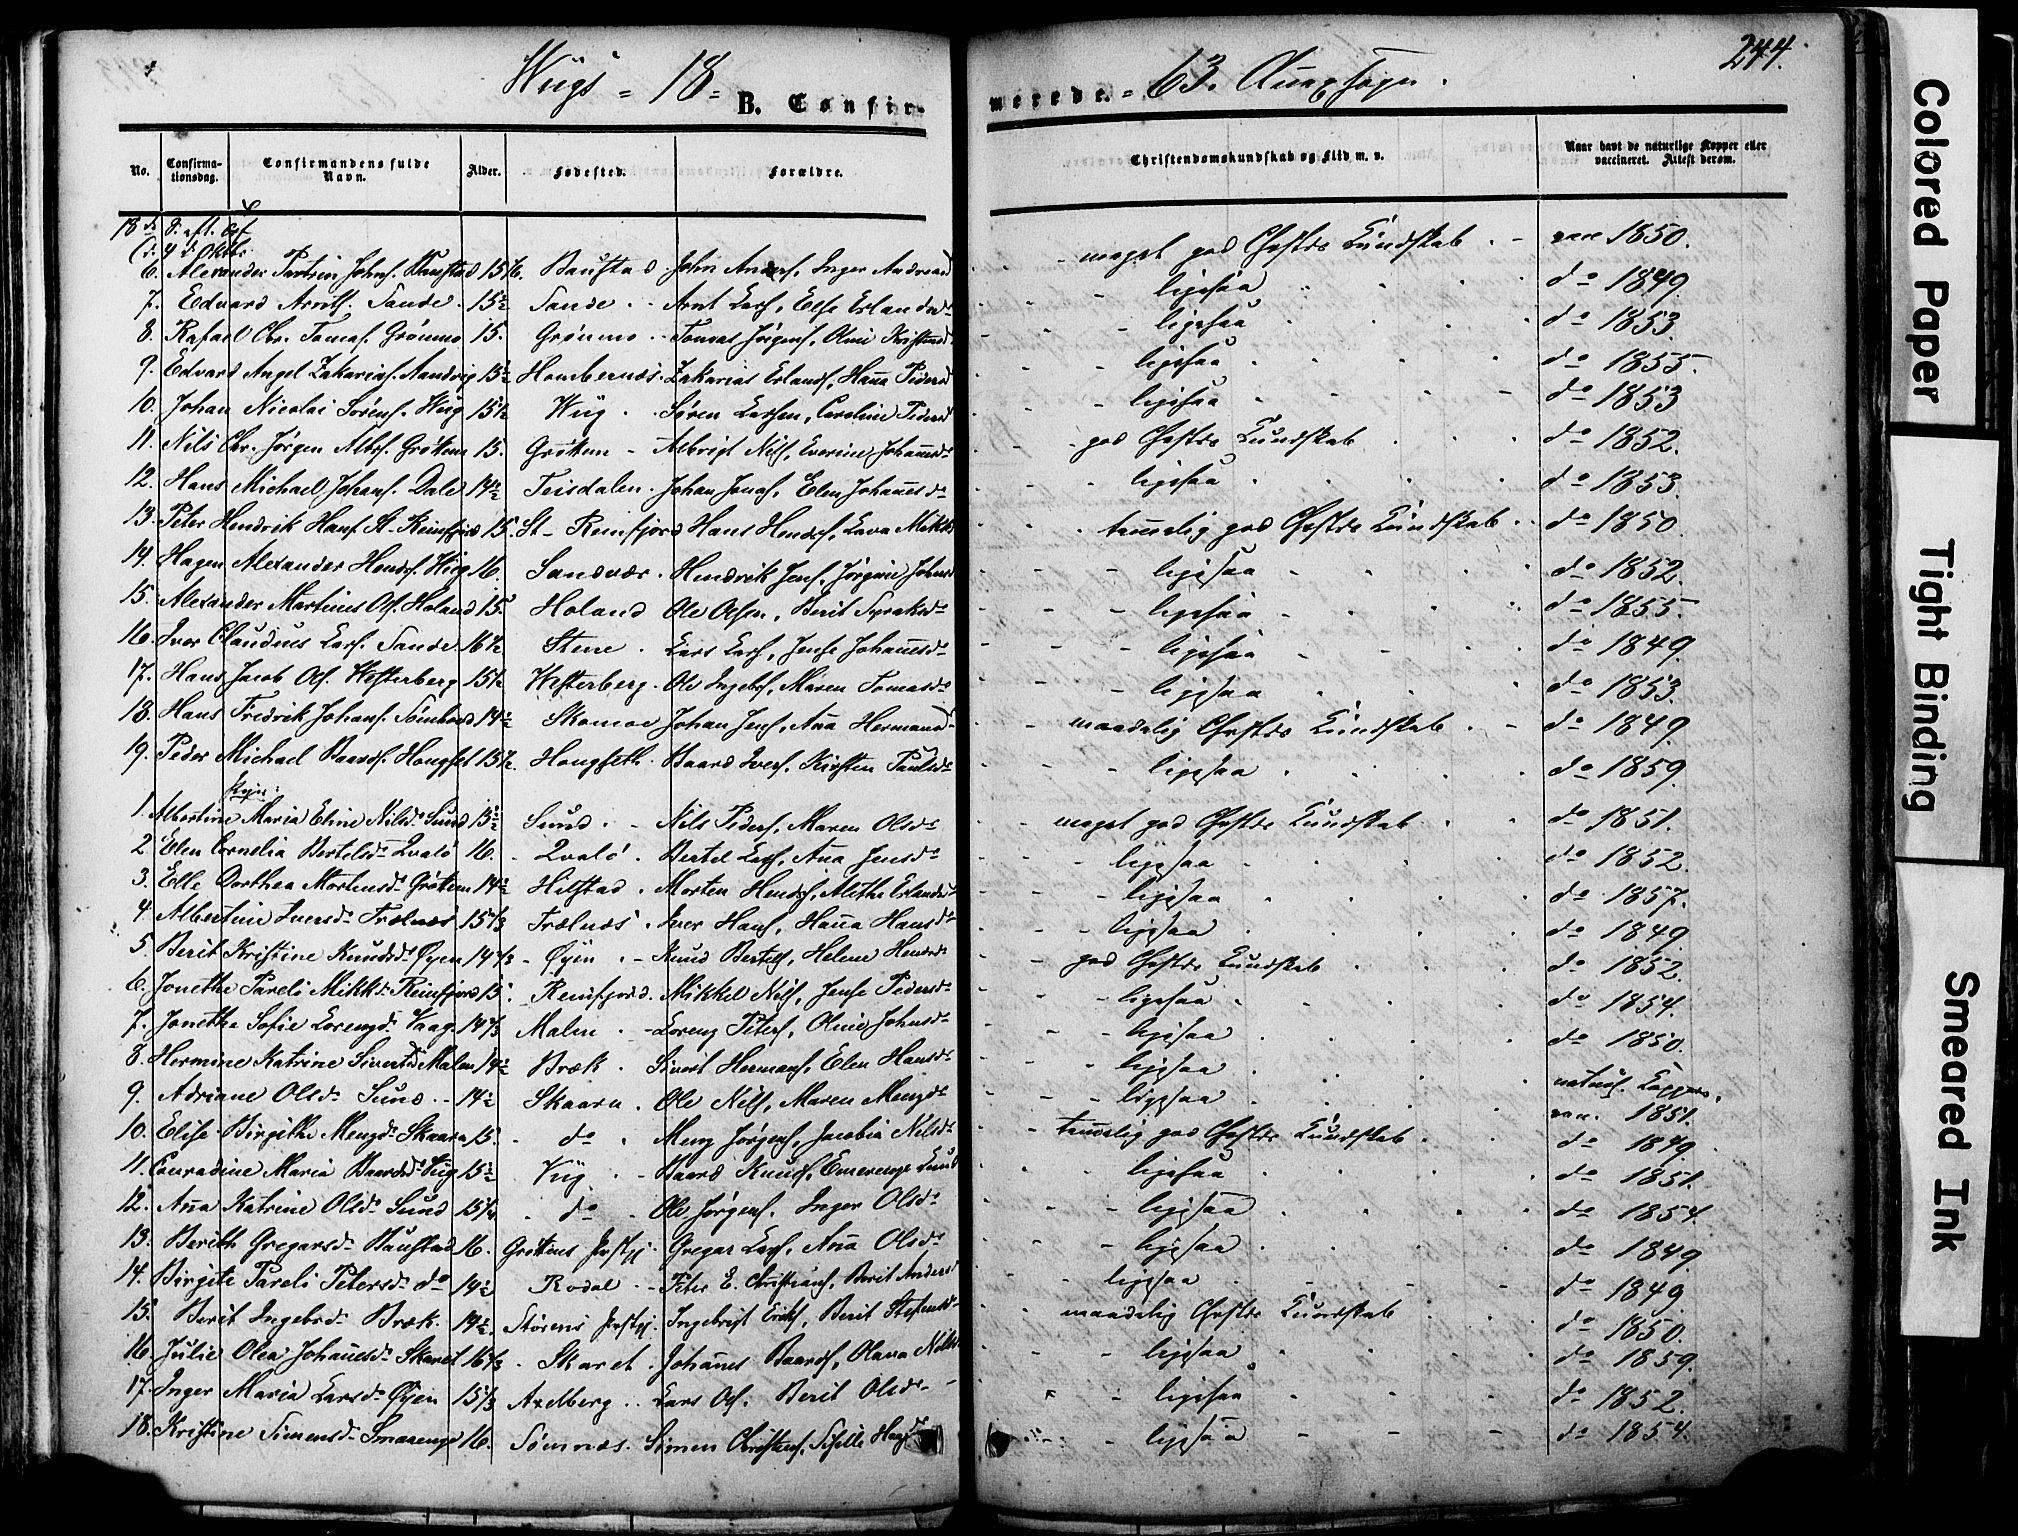 244.
Wiigs = 18 = B. Confir-
merede. = 63. Sogn.
No. Confirma-tionsdag. Confirmandens fulde Navn. Alder. Fødested. Forældre.
Christendomskundskab og Flid m. v. Naar havt de naturlige Kopper eller vaccineret. Attest derom.
18de S. eft.
(d: 4de Oktbr:
6. Alexander Johns. Baustad 15 Baustad John Anders, Inger Andreasd meget god Chrstds Kundskab vacc 1850.
7. Edvard Arnts. Sande 15½ Sande Arnt Lars, Else Erlandsdr ligesaa do 1849.
8. Rafael Chr. Tomas. Grönmo 15. Grönmo Tomas Jörgens, Oline Kristensd ligesaa do 1853.
9. Edvard Angel Zakarias. Aandvig 15½ Hombernæs Zakarias Erlands, Hana Pedersd ligesaa do 1855.
10. Johan Nicolai Sörens. Wiig 15½ Wiig Sören Larsen, Caroline Pedersd ligesaa do 1853
11. Nils Chr. Jörgen Albr. Gröttem 15. Gröttem Albrigt Nils, Everine Johansdr god Chrstds Kundskab do 1852.
12. Hans Michael Johans. Dale 14½ Teisdalen Johan Jonas, Elen Johanesdr ligesaa do 1853.
13. Peter Hendrik Hans. St. Reinsfjord 15. St. Reinsfjord Hans Hendrs, Lava Mikk temelig god Chrstds Kundskab do 1850
14. Hagen Alexander Hends. Wiig 16. Sandvær Hendrik Jens, Jörgine Johnsd ligesaa do 1852.
15. Alexander Martinus Ols. Holand 15 Holand Ole Olsen, Berit Syraksdr ligesaa do 1855.
16. Iver Claudius Lars. Sande 16½ Stene Lars Lars, Jense Johanesdr ligesaa do 1849.
17. Hans Jacob Ols. Westerberg 15½ Westerberg Ole Ingebrs, Maren Tomasdr ligesaa do 1853.
18. Hans Fredrik Johans. 14½ Skomoe Johan Jens, Ana Hermansd maadelig Chrstds Kundskab do 1849.
19. Peder Michael Baards. Hongset 15½ Hongseth Baard Ivers, Kirsten Paulsdr ligesaa do 1859.
1. Albertine Maria Eline Nilsdr Sund 15½ Sund Nils Peders, Maren Olsdr meget god Chrstds Kundskab do 1851.
2. Elen Cornelia Bertelsdr Qvalö 16. Qvalö Bertel Lars, Ana Jensdr ligesaa do 1852.
3. Elle Dorthea Mortensdr Gröttem 14½ Hilstad Morten Hendrs, Alethe Erlandsdr ligesaa do 1857.
4. Albertine Iversdr Trælnæs 15⅓ Trælnæs Iver Hans, Hana Hansdr ligesaa do 1849.
5. Berit Kristine Knudsdr Øyen 14⅓ Øyen Knud Bertels, Helene Hendrsdr god Chrstds Kundskab do 1852.
6. Jonetha Pareli Mikkdr Reinsfjord 15 Reinsfjord Mikkel Nils, Jense Pedersdr ligesaa do 1854.
7. Jonetha Sofie Lorenzdr Vaag 14⅔ Malm Lorenz Peters, Oline Johnsdr ligesaa do 1850.
8. Hermine Katrine Sivertsdr Malm 14½ Bræk Sivert Hermans, Elen Hansdr ligesaa naturl. Kopper.
9. Adriane Olsdr Sund 14½ Skaarn Ole Nils, Maren Mengdr ligesaa vacc. 1851.
10. Elise Birgithe Mengdr Skaara 15. do Meng Jörgens, Jacobia Nilsdr temelig god Chrstds Kundskab do 1849
11. Conradine Maria Baardsdr Wiig 15½ Viig Baard Knuds, Emerenze ligesaa do 1851.
12. Ana Katrine Olsdr Sund 15 do Ole Jörgens, Inger Olsdr ligesaa do 1854.
13. Berith Gregarsdr Baustad 16. Gröttens Prstgj. Gregar Lars, Ana Olsdr ligesaa do 1849
14. Birgite Pareli Petersdr do 14½ Rodal Peter E. Christians, Berit Andersd ligesaa do 1849
15. Berit Ingebrdr Bræk 14½ Störens Prstgj. Ingebrigt Eriks, Berit Stefensdr maadelig Chrstds Kundskab do 1850.
16. Julie Olea Johanesdr Skaret 16⅓ Skaret Johanes Baards, Olava Nilsd ligesaa do 1859.
17. Inger Maria Larsdr Øyen 15⅓ Axelberg Lars Ols. Berit Olsdr ligesaa do 1852.
18. Kristine Simensdr Smaaenge 16. Sömnæs. Simen Christens, Sidselle ligesaa do 1854.
Colored Paper
Tight Binding
Smeared Ink